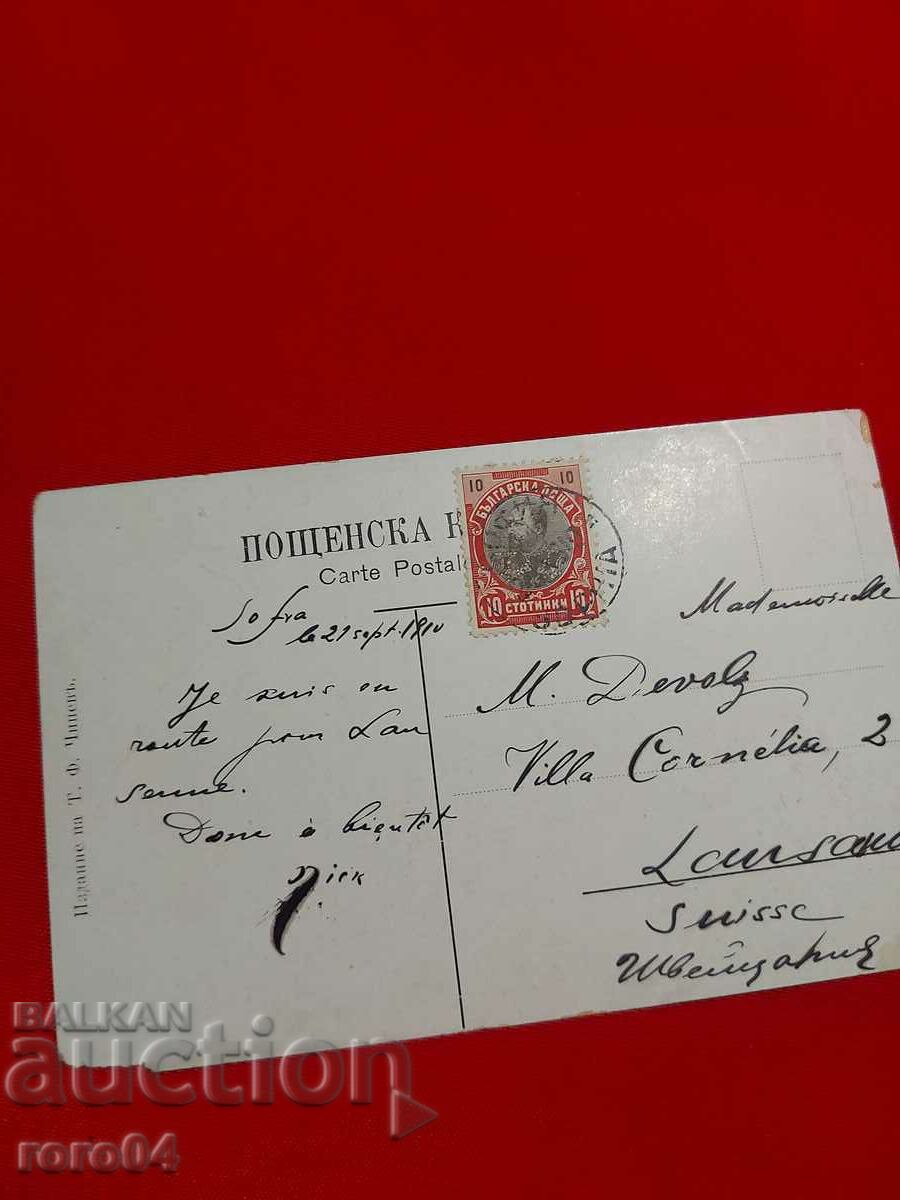 ПОЩЕНСКА К
Carte Postale
10 10
БЪЛГАРСКА ПОЩА
10 СТОТИНКИ 10
Sofia
le 21 sept. 1910
Je suis en
route pour Lau
senne.
Donc à bientôt
Nick
Mademoiselle
M. Devolz
Villa Cornélia, 2
Lausan
Suisse
Швейцария
Издание на Т. Ф. Чипевъ.
BALKAN
auction
roro04